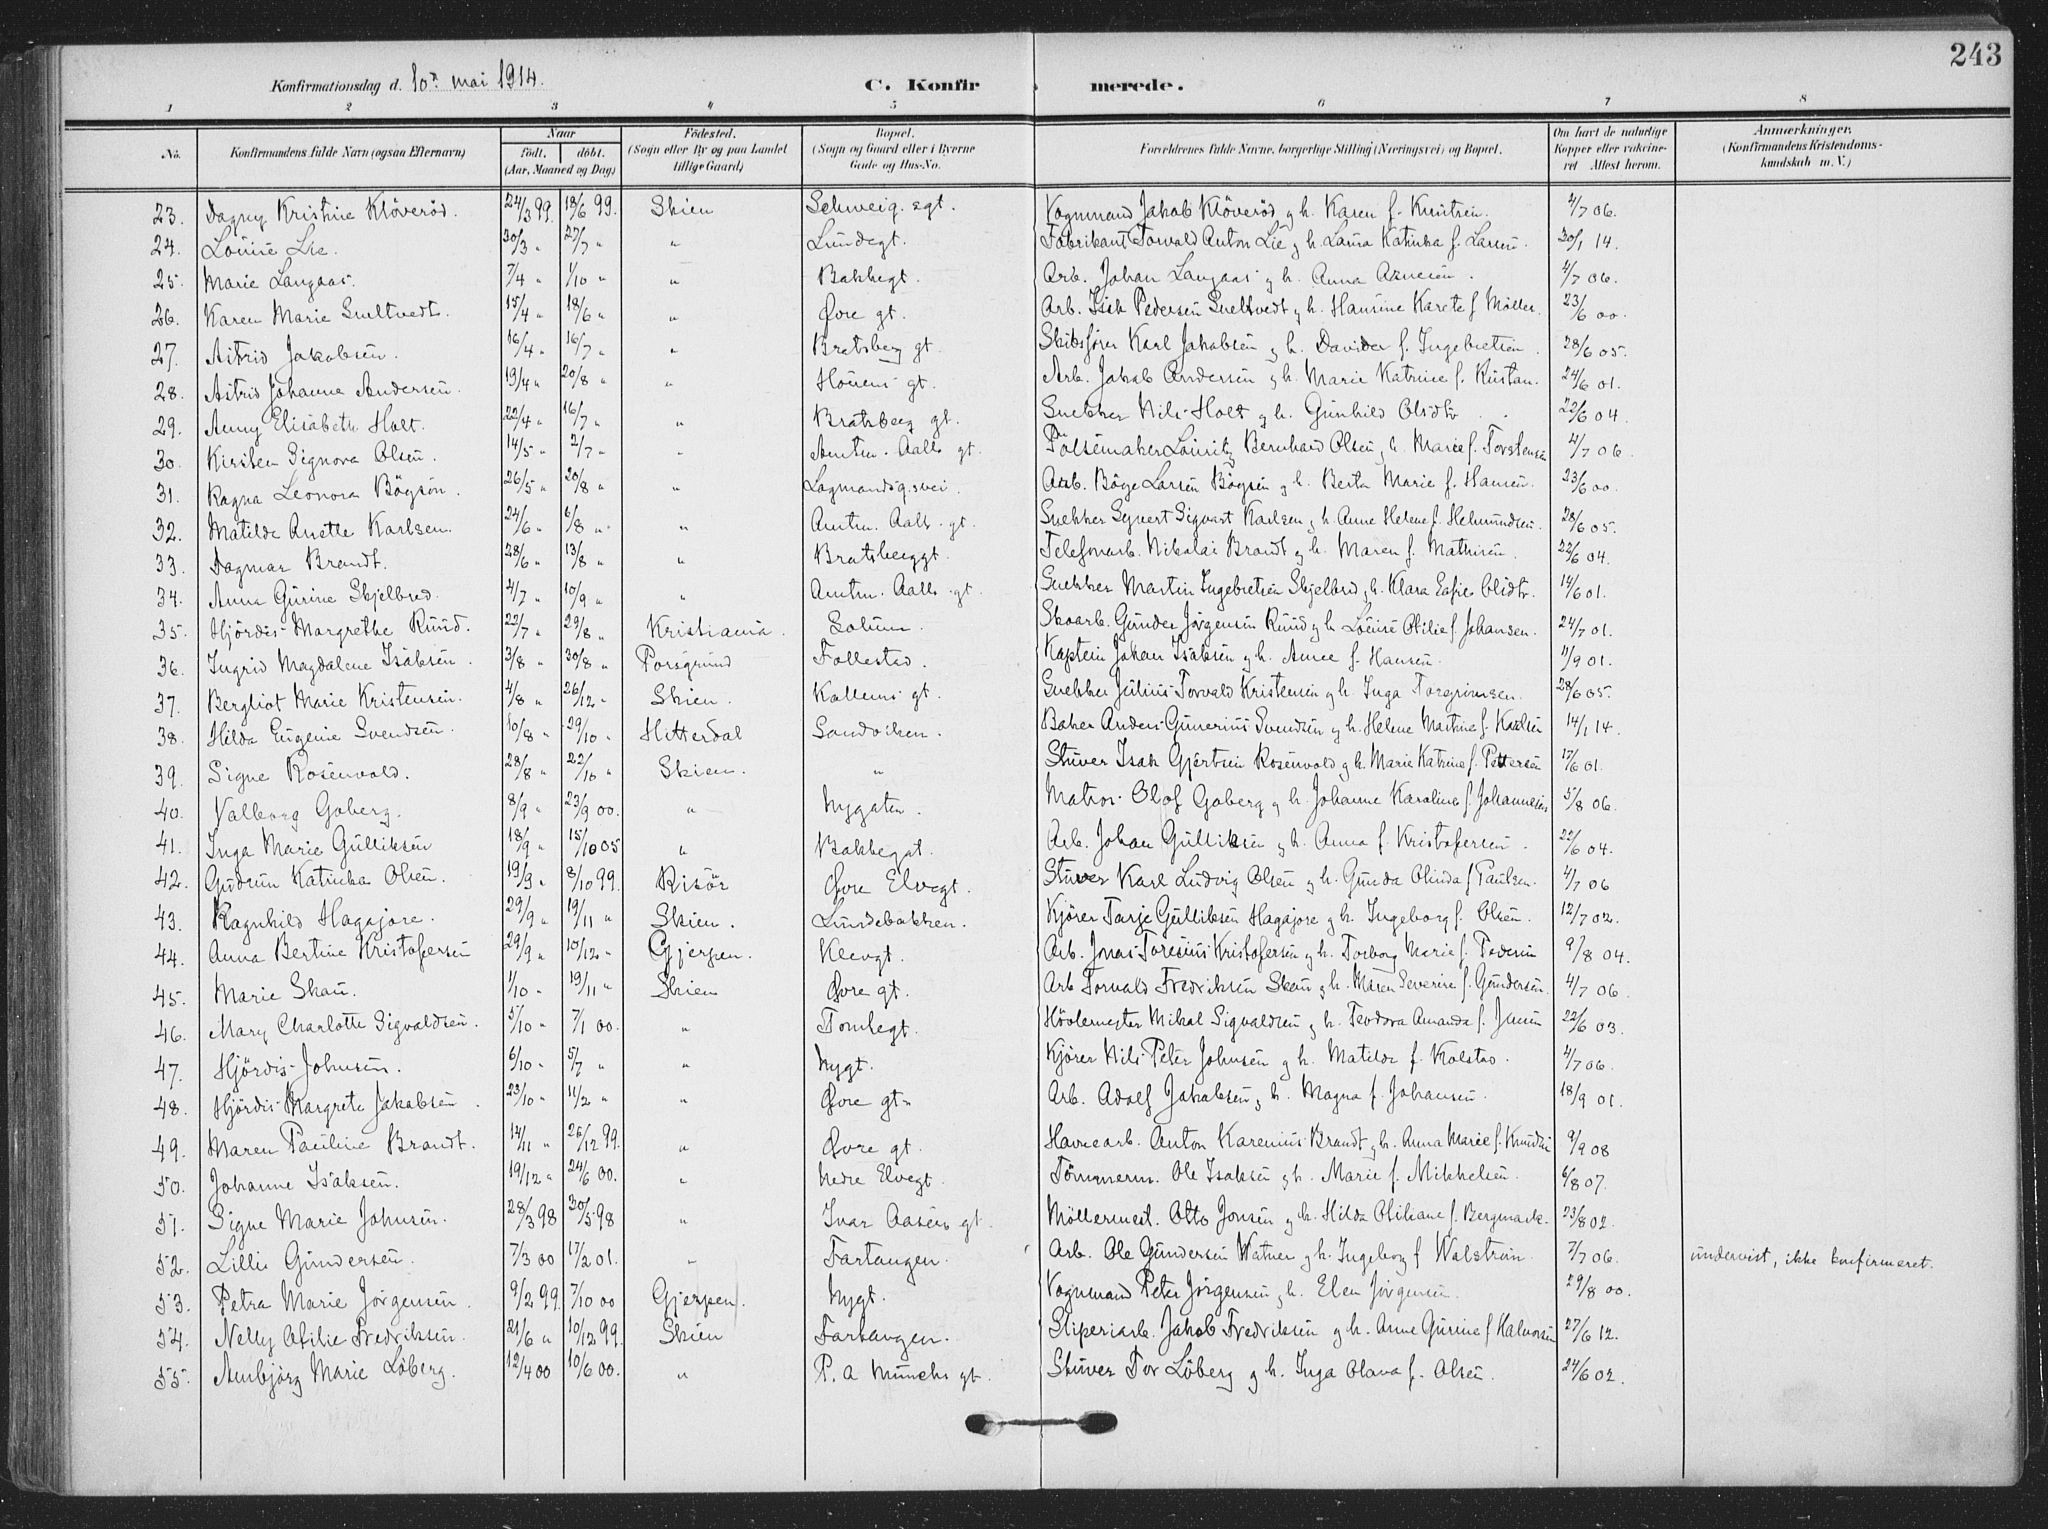 243
Konfirmationsdag d. 10. mai 1914. C. Konfirmerede.
1 2 3 4 5 6 7 8
No. Konfirmandens fulde Navn (ogsaa Efternavn) Naar født. døbt. (Aar, Maaned og Dag) Fødested. (Sogn eller By og paa Landet tillige Gaard) Bopæl. (Sogn og Gaard eller i Byerne Gade og Hus-No. Forældrenes fulde Navne, borgerlige Stilling (Næringsvei) og Bopæl. Om havt de naturlige Kopper eller vakcineret Attest herom. Anmærkninger. (Konfirmandens Kristendomskundskab m. V.)
23. Dagny Kristine Klöveröd. 24/3 99. 18/6 99. Skien Schweig.sgt. Vognmand Jakob Klöveröd og h. Karen f. Knutsen. 4/7 06.
24. Louise Lie. 30/3 " 27/7 " " Lundegt. Fabrikant Torvald Anton Lie og h. Laura Katinka f. Larsen. 30/1 14.
25. Marie Langaas. 7/4 " 1/10 " " Bakkegt. Arb. Johan Langaas og h. Anna Arnesen. 4/7 06.
26. Karen Marie Sneltvedt. 15/4 " 18/6 " " Øvre gt. Arb. Isak Pedersen Sneltvedt og h. Hansine Karete f. Möller. 23/6 00.
27. Astrid Jakobsen. 16/4 " 16/7 " " Bratsberg gt. Skibsfører Karl Jakobsen og h. Davida f. Ingebretsen. 28/6 05.
28. Astrid Johanne Andersen. 19/4 " 20/8 " " Houens gt. Arb. Jakob Andersen og h. Marie Katrine f. Kristan. 24/6 01.
29. Anny Elisabeth Holt. 22/4 " 16/7 " " Bratsberg gt. Snekker Nils Holt og h. Gunhild Olsdtr. 22/6 04.
30. Kirsten Signora Olsen. 14/5 " 2/7 " " Amtm. Aalls gt. Pölsemaker Lauritz Bernhard Olsen og h. Marie f. Torstensen 4/7 06.
31. Ragna Leonora Bögsön. 26/5 " 20/8 " " Lagmandsg.svei. Arb. Böge Larsen Bögsen og h. Berta Marie f. Hansen. 23/6 00.
32. Matilde Anette Karlsen. 24/6 " 6/8 " " Amtm. Aalls gt. Snekker Syvert Sigvart Karlsen og h. Anne Helene f. Helmundsen. 28/6 05.
33. Dagmar Brandt. 28/6 " 13/8 " " Bratsberggt. Telefonarb. Nikolai Brandt og h. Maren f. Mathisen. 22/6 04.
34. Anna Gurine Skjelbred. 4/7 " 10/9 " " Amtm. Aalls gt. Snekker Martin Ingebretsen Skjelbred og h. Klara Olsdtr. 14/6 01.
35. Hjördis Margrethe Rund. 22/7 " 29/8 " Kristiania. Solum. Skoarb. Gunder Jørgensen Rund og h. Louise Otilie f. Johansen. 24/7 01.
36. Ingrid Magdalene Isaksen. 3/8 " 30/8 " Porsgrund Follestad. Kaptein Johan Isaksen og h. Anne f. Hansen. 11/9 01.
37. Bergliot Marie Kristensen. 4/8 " 26/12 " Skien. Kallems gt. Snekker Julius Torvald Kristensen og h. Inga Torgrimsen. 28/6 05.
38. Hilda Eugenie Svendsen. 10/8 " 29/10 " Hitterdal Sandviken. Baker Anders Gunerius Svendsen og h. Helene Martine f. Karlsen 14/1 14.
39. Signe Rosenvold. 28/8 " 22/10 " Skien. " Stuver Isak Gjertsen Rosenvold og h. Marie Katrine f. Pettersen 17/6 01.
40. Valborg Goberg. 8/9 " 23/9 00. " Nygaten. Matros Olof Goberg og h. Johanne Karoline f. Johannesen 5/8 06.
41. Inga Marie Gulliksen 18/9 " 15/10 05 " Bakkegat. Arb. Johan Gulliksen og h. Anna f. Kristofersen. 22/6 04.
42. Gudrun Katinka Olsen. 19/9 " 8/10 99. Risör Øvre Elvegt. Stuver Karl Ludvig Olsen og h. Gunda Olinda f. Paulsen. 4/7 06
43. Ragnhild Hagajore. 29/9 " 19/11 " Skien. Lundebakken. Kjører Tarje Gulliksen Hagajore og h. Ingeborg f. Olsen. 12/7 02.
44. Anna Bertine Kristofersen 29/9 " 10/12 " Gjerpen. Klevgt. Arb. Jonas Toresius Kristofersen og h. Torborg Marie f. Pedersen 9/8 04.
45. Marie Skau. 1/10 " 19/11 " Skien Øvre gt. Arb Torvald Fredriksen Skau og h. Maren Severine f. Gundersen. 4/7 06.
46. Mary Charlotte Sigvaldsen. 5/10 " 7/1 00. " Tomtegt. Høvlemester Mikal Sigvaldsen og h. Teodora Amanda f. Jensen 22/6 03.
47. Hjördis Johnsen. 6/10 " 5/7 " " Nygt. Kjører Nils Peter Johnsen og h. Matilde f. Kolstad. 4/7 06.
48. Hjördis Margrete Jakobsen. 23/10 " 11/2 " " Øvre gt. Arb. Adolf Jakobsen og h. Magna f. Johansen. 18/9 01.
49. Maren Pauline Brandt. 14/11 " 26/12 99. " Øvre gt. Havnearb. Anton Karenius Brandt og h. Anna Marie f. Knudsen 9/9 08
50. Johanne Isaksen. 19/12 " 24/6 00. " Nedre Elvegt. Tömmerm. Ole Isaksen og h. Marie f. Mikkelsen. 6/8 07.
51. Signe Marie Johnsen. 28/3 98 30/5 98 " Ivar Aasens gt. Möllermest. Otto Jonsen og h. Hilda Otiliane f. Bergmark. 23/8 02.
52. Lillis Gundersen. 7/3 00 17/2 01. " Fartangen. Arb. Ole Gundersen Watner og h. Ingeborg f. Walstrøm 7/7 06. undervist, ikke konfirmeret.
53. Petra Marie Jörgensen. 9/2 99. 7/10 00 Gjerpen. Nygt. Vognmand Peter Jörgensen og h. Elen Jörgensen. 29/8 00.
54. Nelly Otilie Fredriksen. 21/6 " 10/12 99. Skien Fartangen. Sliperiarb. Jakob Fredriksen og h. Anne Gurine f. Halvorsen 27/6 12.
55. Ambjörg Marie Löberg. 12/4 00 10/6 00. " P. A Munchs gt. Stuver Tov Löberg og h. Inga Olava f. Olsen. 24/6 02.